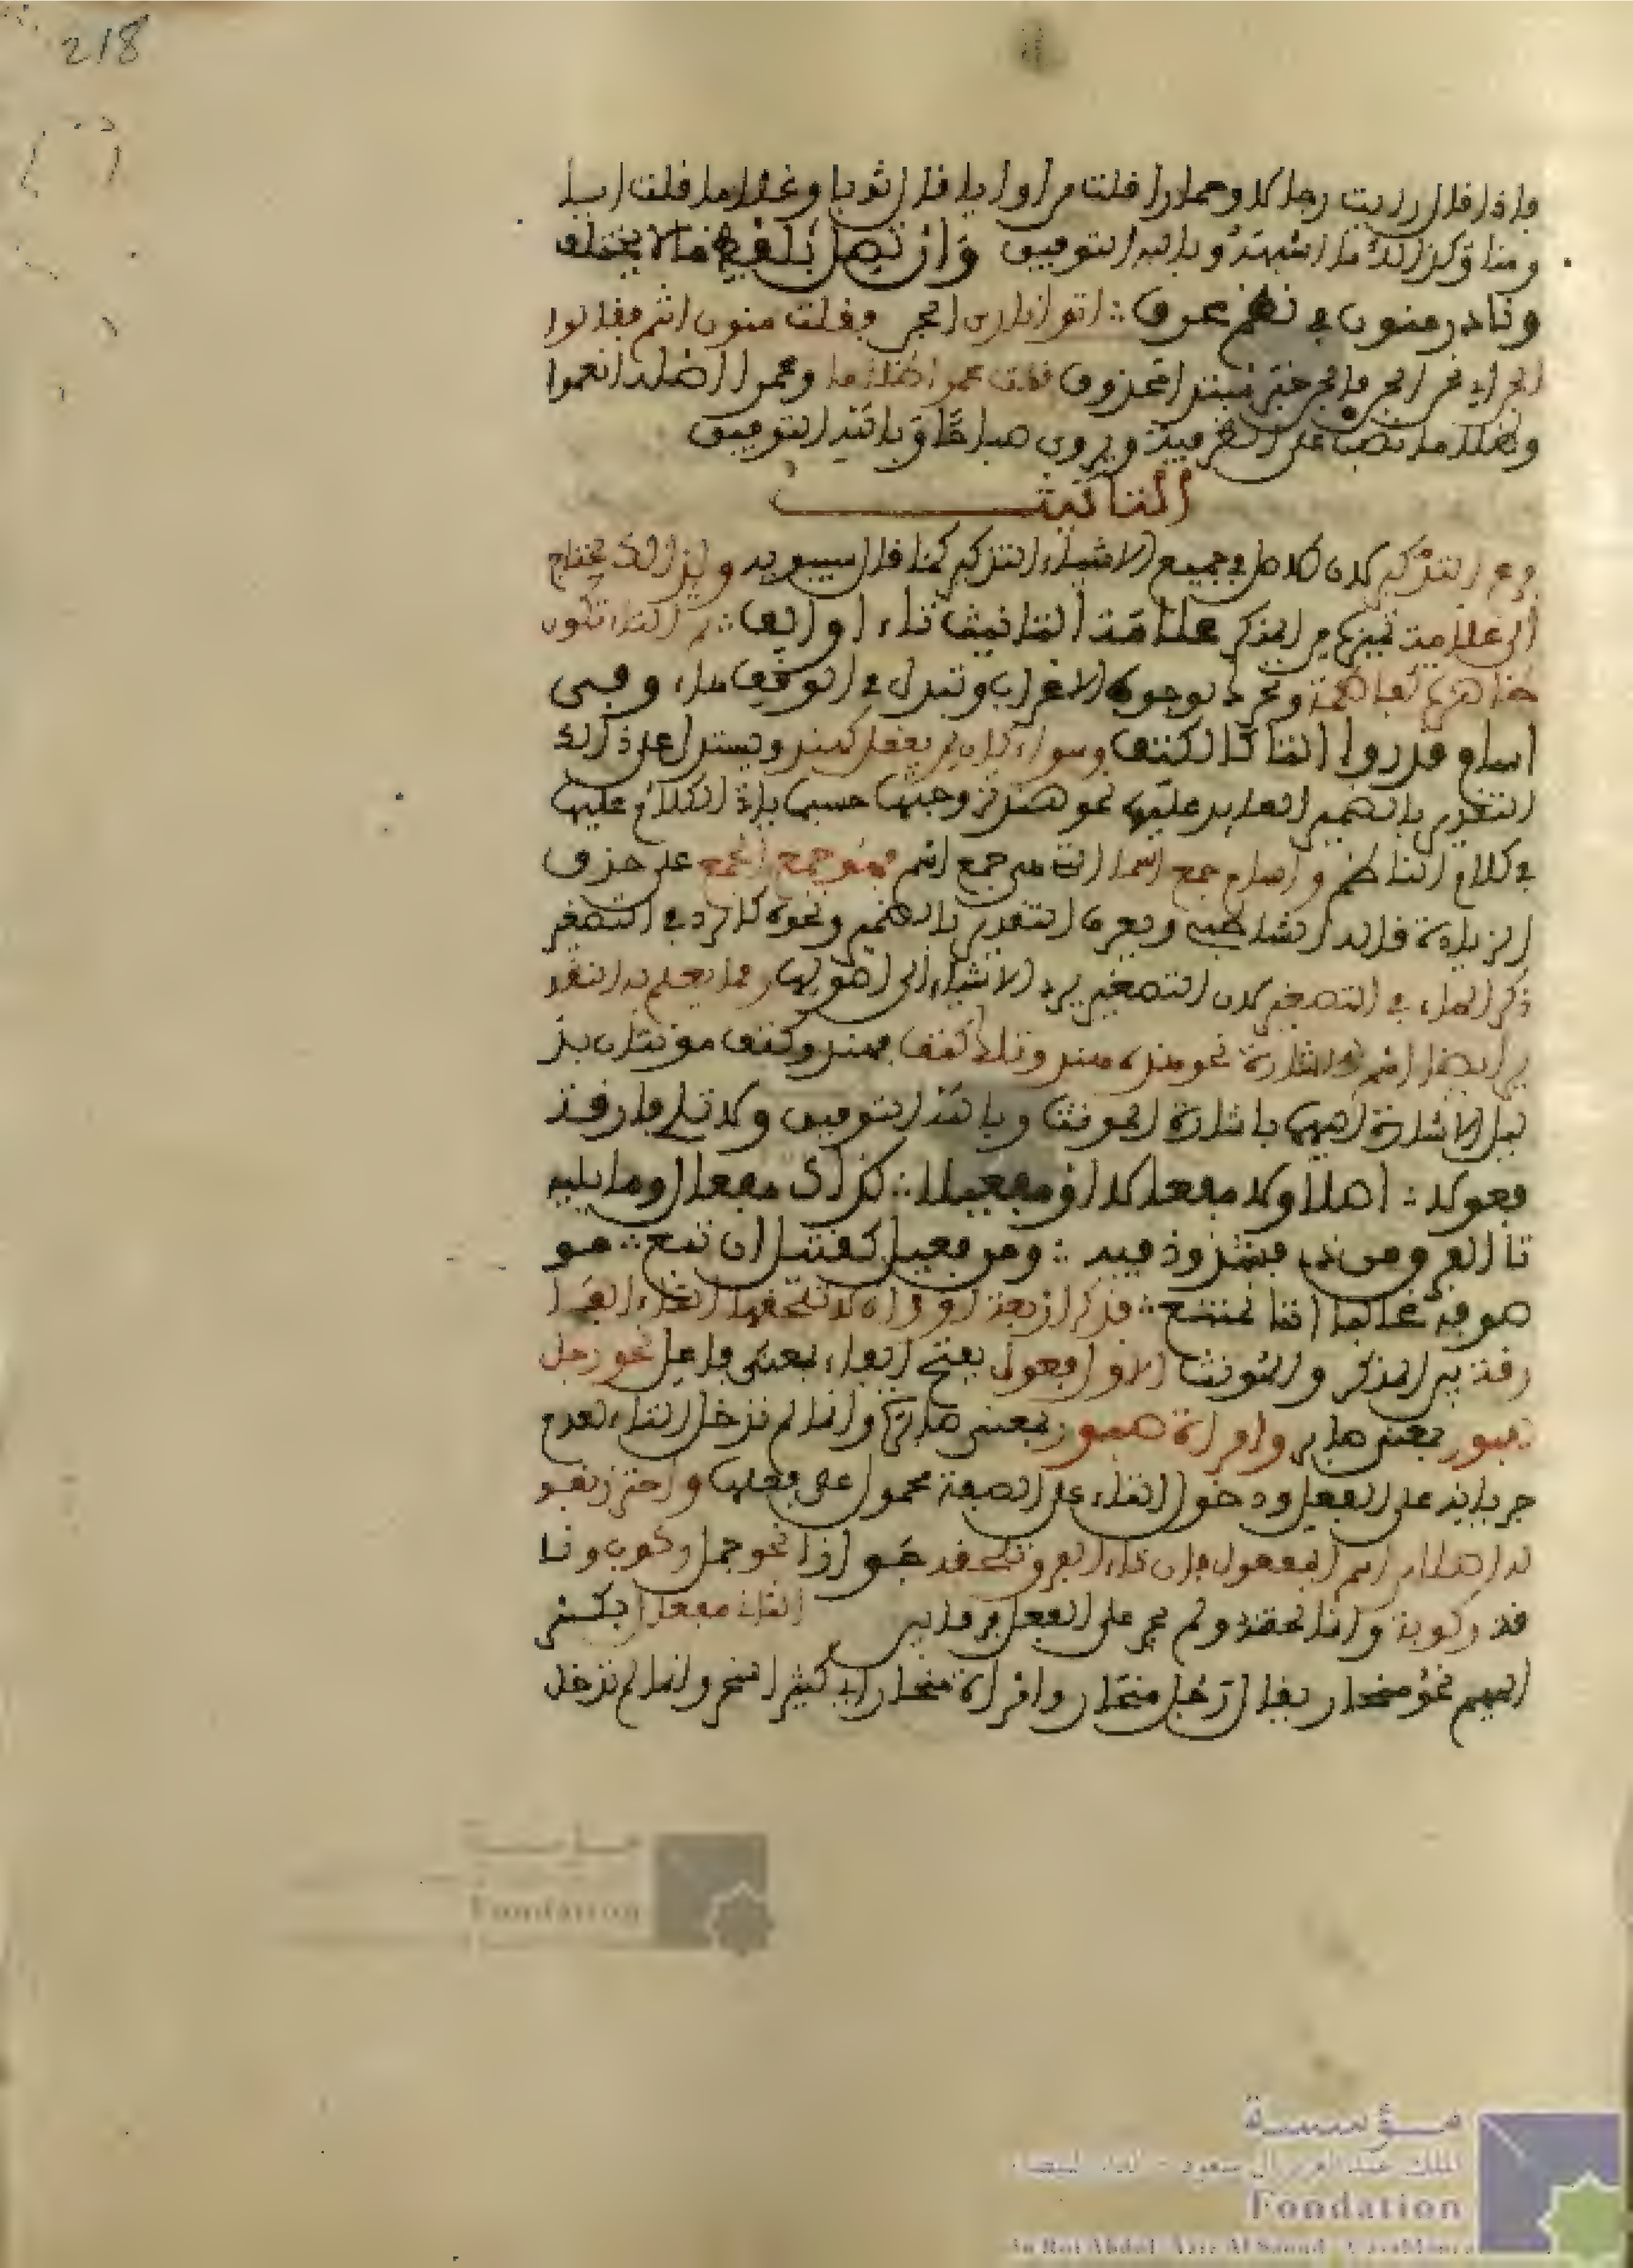 218
فإذا قال رايت رجلا وحمارا قلت من وايا فإن قال ثوبا وغلاما قلت ايا
ومنا وكذلك ما اشبهه وبالله التوفيق وان تصل بلفظ من لا يختلف
ونادر منون في نظم عرف اتوا ناري فقلت منون انتم فقالوا
الجن اي نحن الجن فالجن خبر مبتدإ محذوف قلت عموا ظلاما وعموا اصله انعموا
وظلاما نصب على الظرفية ويروى صباحا وبالله التوفيق
التانيث
فرع التذكير لان الاصل في جميع الاشياء التذكير كما قال سيبويه ولذلك يحتاج
الى علامة تميزه من المذكر علامة التانيث تاء او الف التاء تكون
ظاهرة كفاطمة وتجرى بوجوه الاعراب وتبدل في الوقف هاء وفي
اسام قدروا التا كالكتف وسواء كان لمن يعقل كهند ويستدل على ذلك
التقدير بالضمير العايد عليها نحو هند زوجتها حسبما ياتي الكلام عليها
في كلام الناظم واسام جمع اسما التي هي جمع اسم فهو جمع الجمع على حذف
الزيادة قاله الشاطبي ويعرف التقدير بالضمير ونحوه كالرد في التصغير
ذكر الهاء في التصغير لان التصغير يرد الاشياء الى اصولها ومما يعلم به التقد
ير ايضا اسم الاشارة نحو هذه هند وتلك كتف فهند وكتف مونثان بد
ليل الاشارة اليهما باشارة المونث وبالله التوفيق ولا تلي فارقة
فعولا اصلا ولا مفعالا او مفعيلا كذاك مفعل وما يليه
تا الفرق من ذي فشذوذ فيه ومن فعيل كقتيل ان تبع
موصوفه غالبا التا تمتنع فذكر اربعة اوزان لا تلحقها التاء الفا
رقة بين المذكر والمونث الاول فعول بفتح الفاء بمعنى فاعل نحو رجل
صبور بمعنى صابر وامراة صبور بمعنى صابرة وانما لم تدخل التاء لعدم
جريانه على الفعل ودخول التاء على الصفة محمول على فعلها واحترز بقو
له اصلا من اسم المفعول فان تاء الفرق تلحقه جوازا نحو جمل ركوب ونا
قة ركوبة وانما لحقته ولم يجر على الفعل الثاني مفعال بكسر
الميم نحو منحار يقال رجل منحار وامراة منحار اي كثير النحر وانما لم تدخل
مؤسسة
Fondation
مؤسسة
الملك عبد العزيز آل سعود - الدار البيضاء
Fondation
du Roi Abdul-Aziz Al Saoud - Casablanca